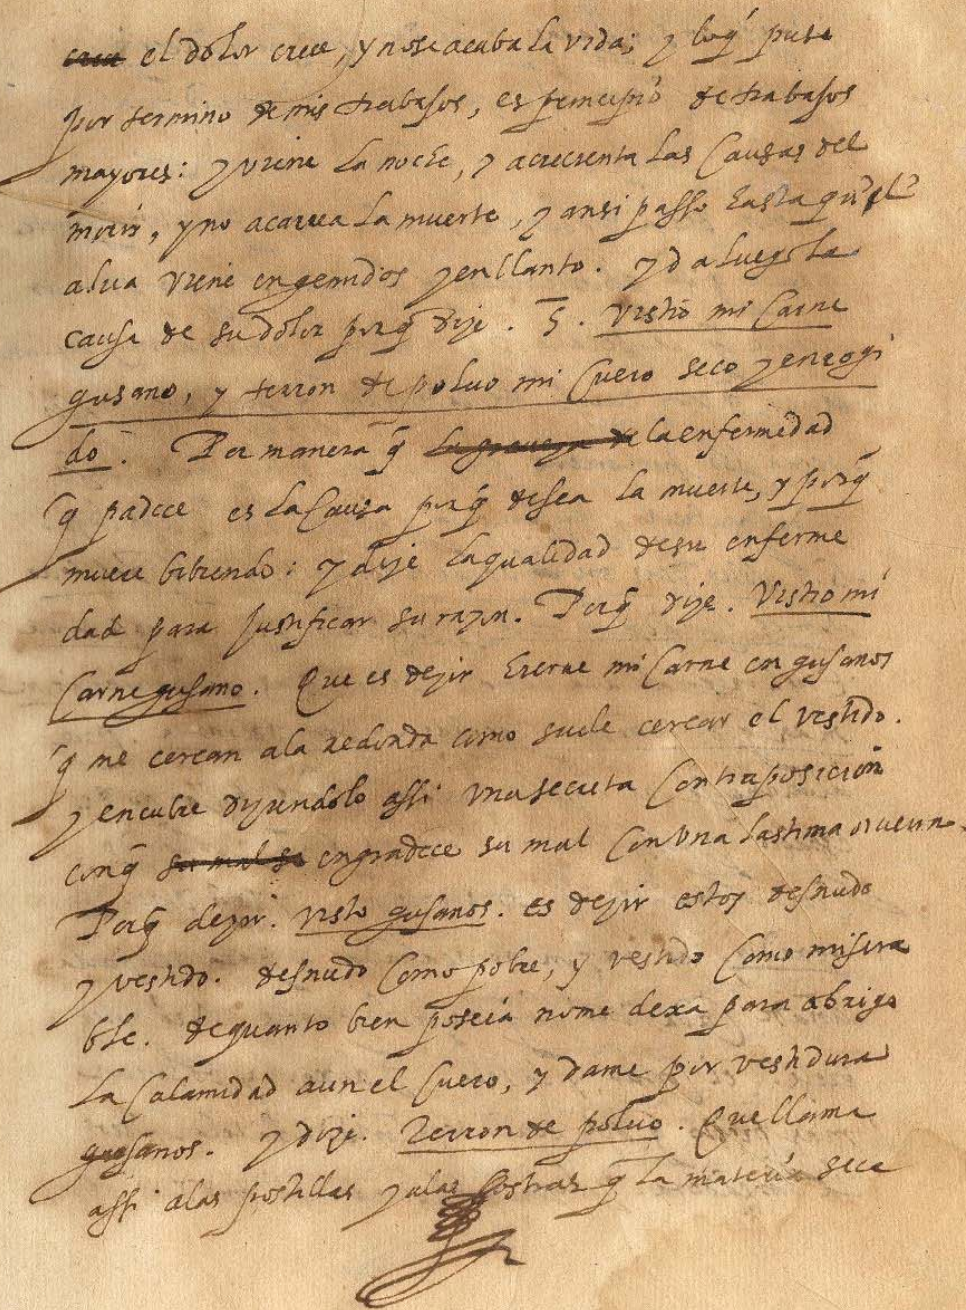 crece el dolor crece, y no se acaba la vida; y loq̃ puse
por termino de mis trabajos, es principio de trabajos
mayores: y viene la noche, y acrecienta las causas del
morir, y no acarrea la muerte, y ansi passo hasta qu el
alua viene en gemidos y en llanto. y da luego la
causa de su dolor porq̃ dize. 5. Vistio mi carne
gusano, y terron de poluo mi cuero seco y encogi
do. Por manera q̃ la graueza de la enfermedad
q̃ padece es la causa porq̃ desea la muerte, y porq̃
muere bibiendo: y dize la qualidad de su enferme
dad para justificar su razon. Porq̃ dize. Vistio mi
carne gusano. Que es dezir hierue mi carne en gusanos
q̃ me cercan ala redonda como suele cercar el vestido.
y encubre diziendolo assi una secreta contraposicion
conq̃ su mal se engradece su mal con una lastima
Porq̃ dezir. visto gusanos. es dezir estoy desnudo
y vestido. desnudo como pobre, y vestido como misera
ble. de quanto bien poseia no me dexa para abrigo
la calamidad aun el cuero, y dame por vestidura
gusanos. y dize. Terron de poluo. Que llama
assi alas postillas y alas costras q̃ la materia seca